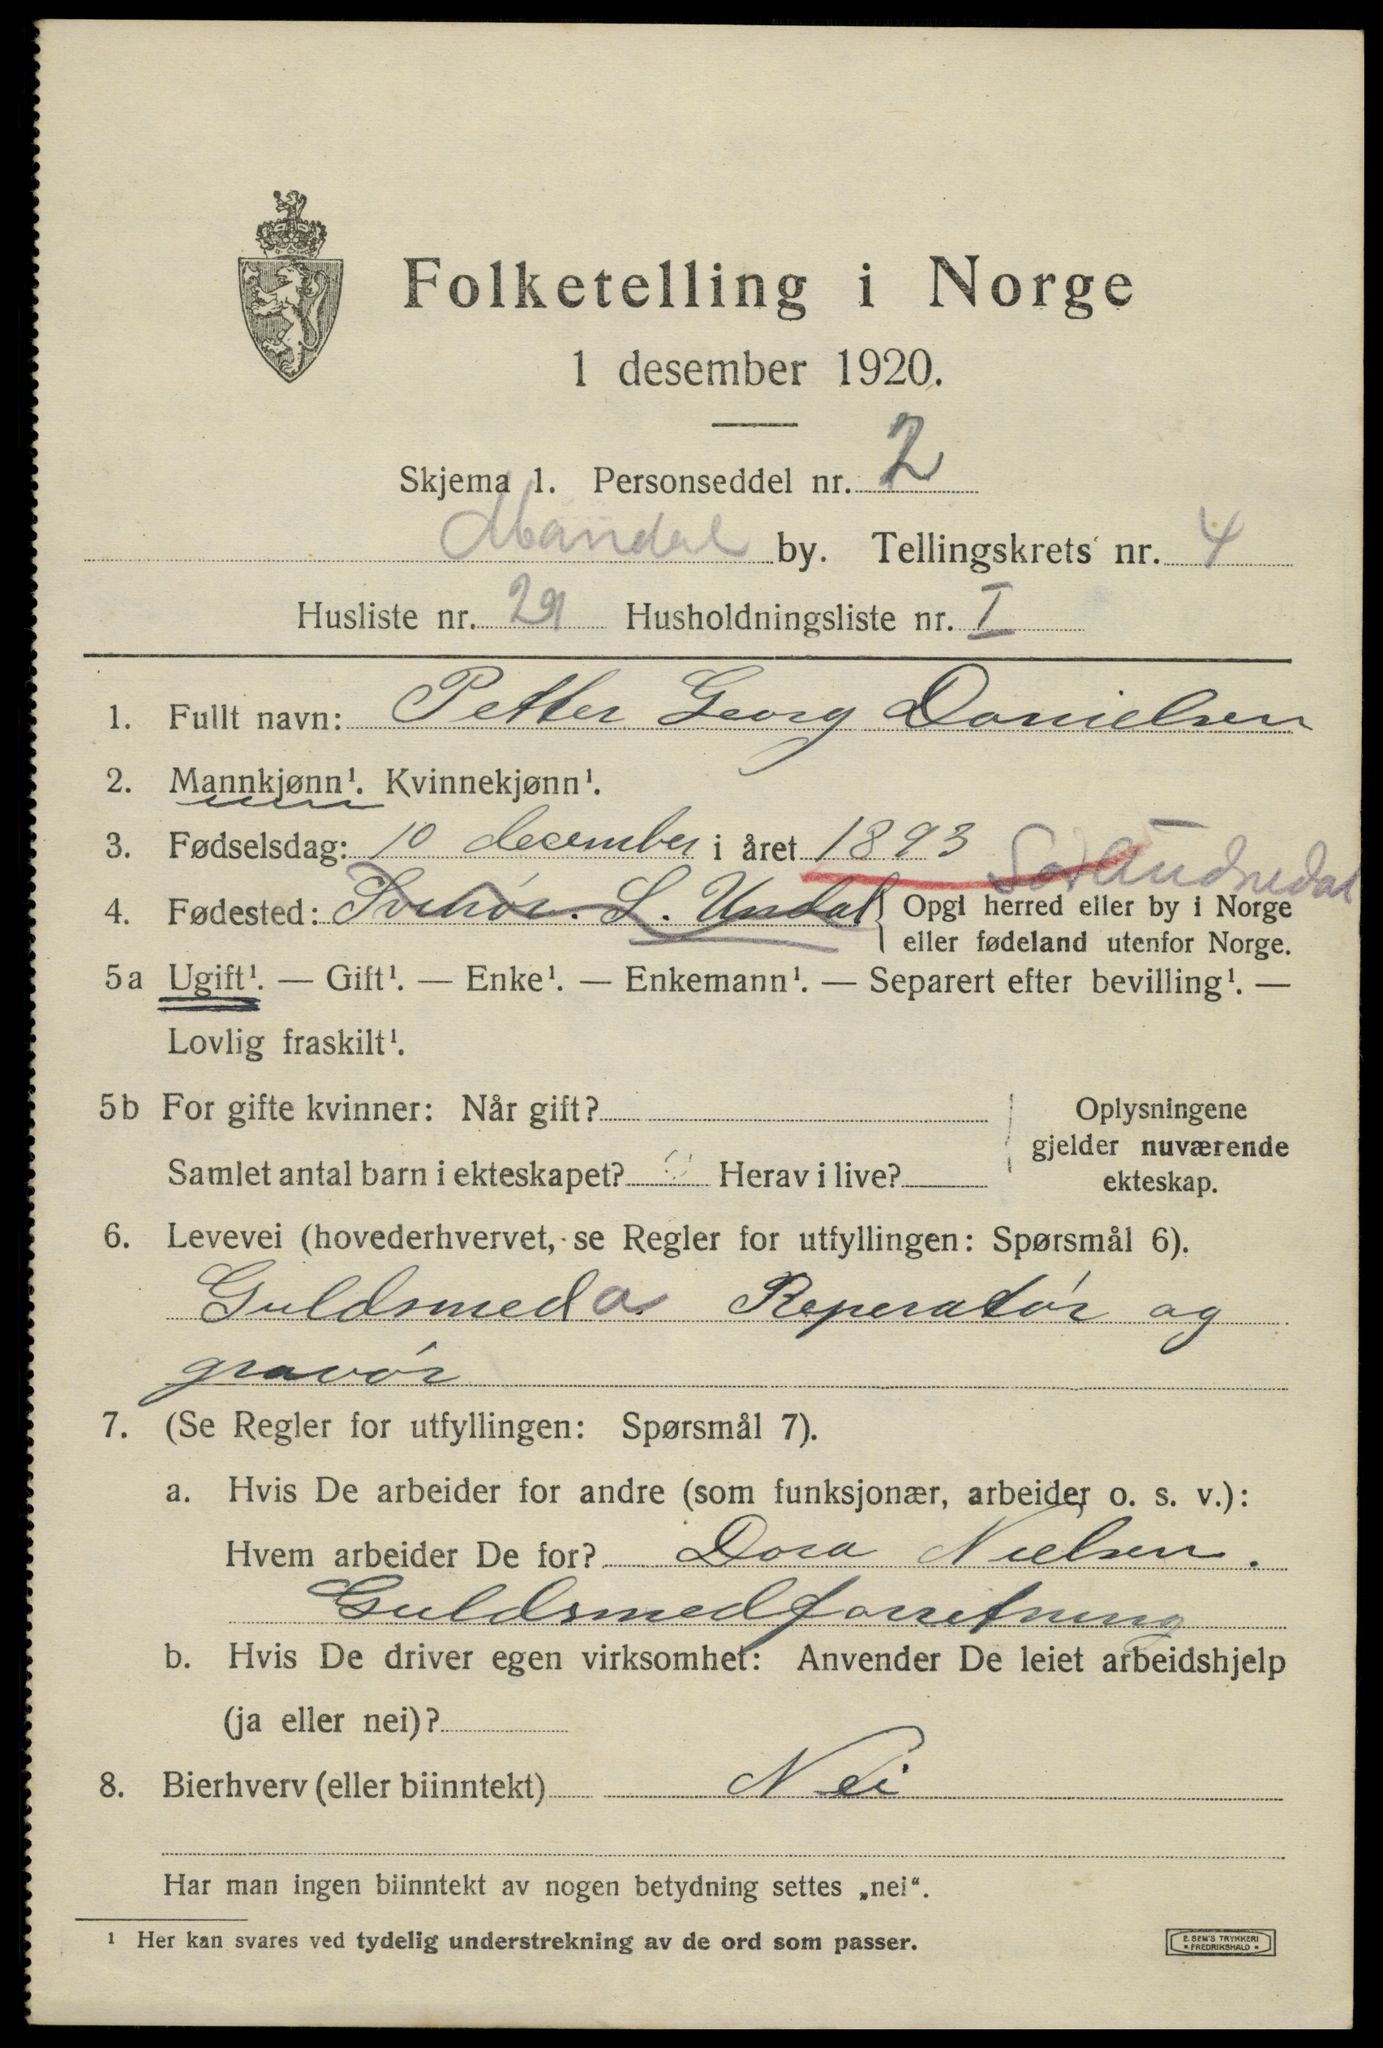 Folketelling i Norge
1 desember 1920.
Skjema 1. Personseddel nr. 2
Mandal by. Tellingskrets nr. 4
Husliste nr. 29 Husholdningsliste nr. I
1. Fullt navn: Petter Georg Danielsen
2. Mannkjønn¹. Kvinnekjønn¹.
3. Fødselsdag: 10 december i året 1893
Sør Audnedal
4. Fødested: S. Undal Opgi herred eller by i Norge
eller fødeland utenfor Norge.
5a Ugift¹. — Gift¹. — Enke¹. — Enkemann¹. — Separert efter bevilling¹. —
Lovlig fraskilt¹.
5b For gifte kvinner: Når gift?
Samlet antal barn i ekteskapet? Herav i live?
Oplysningene
gjelder nuværende
ekteskap.
6. Levevei (hovederhvervet, se Regler for utfyllingen: Spørsmål 6).
Guldsmed a. Reperatør og
gravør
7. (Se Regler for utfyllingen: Spørsmål 7).
a. Hvis De arbeider for andre (som funksjonær, arbeider o. s. v.):
Hvem arbeider De for? Dora Nielsen.
Guldsmedforretning
b. Hvis De driver egen virksomhet: Anvender De leiet arbeidshjelp
(ja eller nei)?
8. Bierhverv (eller biinntekt) Nei
Har man ingen biinntekt av nogen betydning settes „nei“.
¹ Her kan svares ved tydelig understrekning av de ord som passer.
E. SEM'S TRYKKERI
* FREDRIKSHALD *